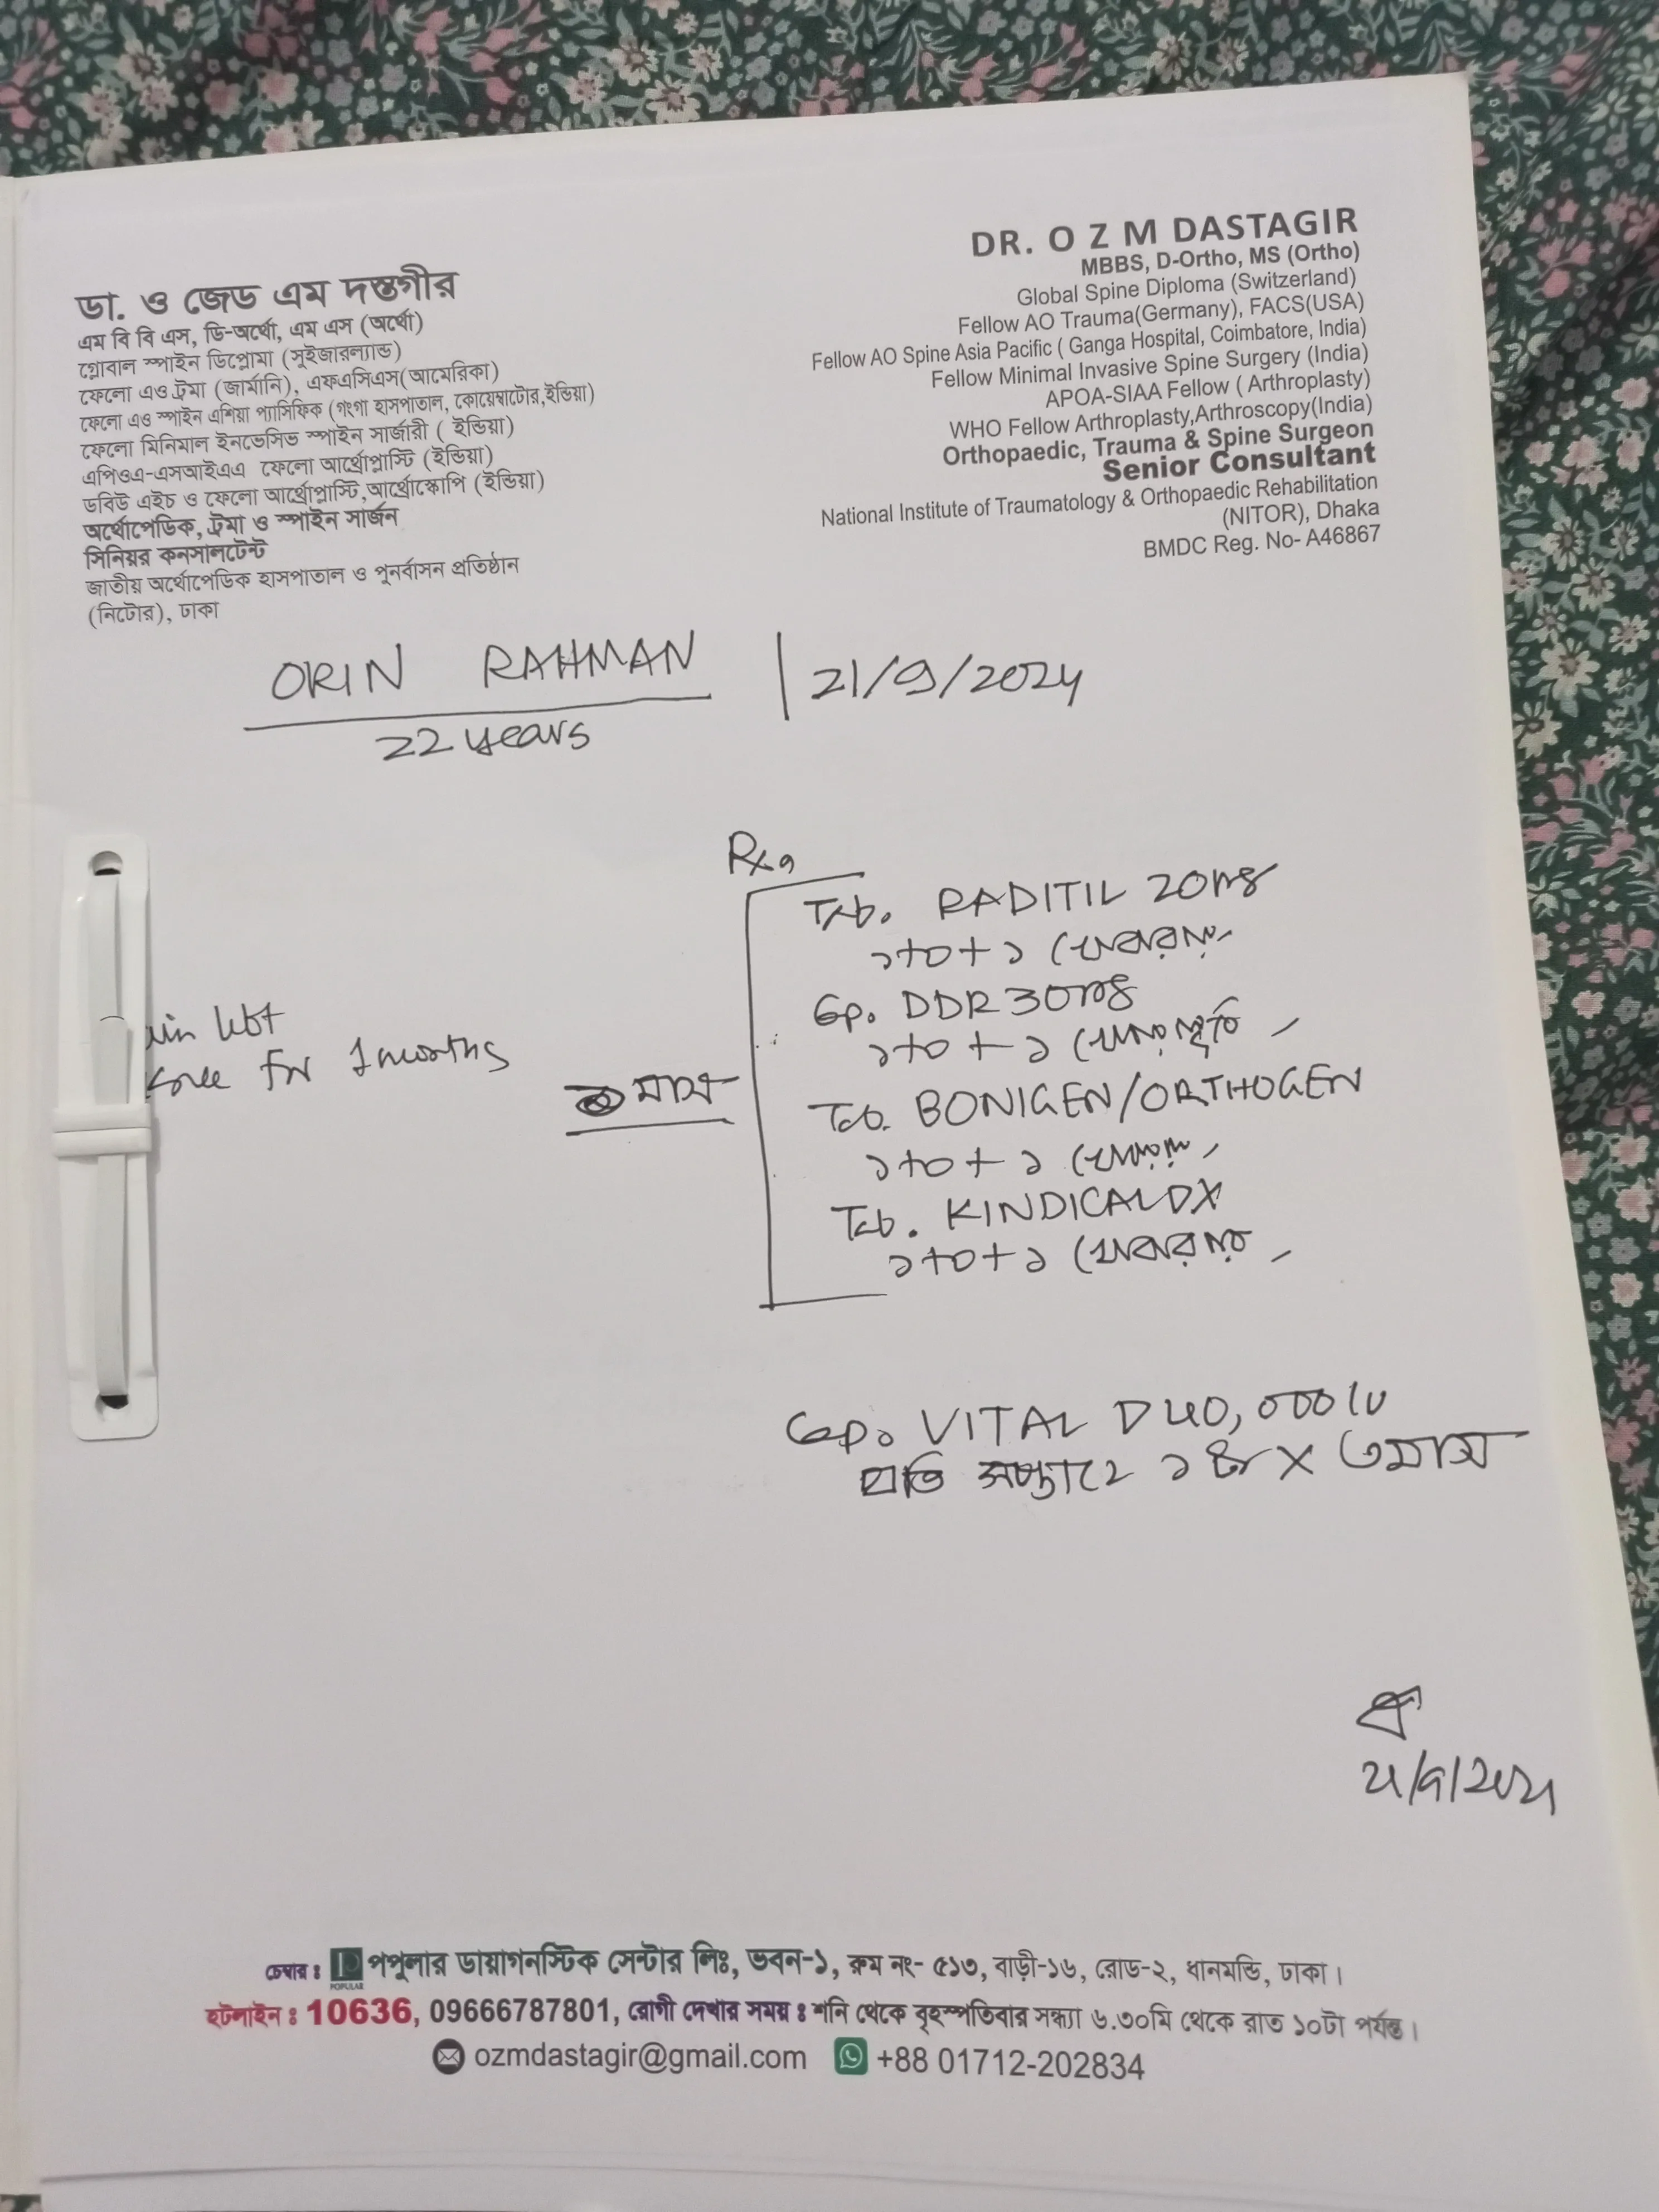 ডা. ও জেড এম দস্তগীর
এম বি বি এস, ডি-অর্থো, এম এস (অর্থো)
গ্লোবাল স্পাইন ডিপ্লোমা (সুইজারল্যান্ড)
ফেলো এও ট্রমা (জার্মানি), এফএসিএস(আমেরিকা)
ফেলো এও স্পাইন এশিয়া প্যাসিফিক (গংগা হাসপাতাল, কোয়েম্বাটোর,ইন্ডিয়া)
ফেলো মিনিমাল ইনভেসিভ স্পাইন সার্জারী ( ইন্ডিয়া)
এপিওএ-এসআইএএ ফেলো আর্থ্রোপ্লাস্টি (ইন্ডিয়া)
ডবিউ এইচ ও ফেলো আর্থ্রোপ্লাস্টি,আর্থ্রোস্কোপি (ইন্ডিয়া)
অর্থোপেডিক, ট্রমা ও স্পাইন সার্জন
সিনিয়র কনসালটেন্ট
জাতীয় অর্থোপেডিক হাসপাতাল ও পুনর্বাসন প্রতিষ্ঠান
(নিটোর), ঢাকা
DR. O Z M DASTAGIR
MBBS, D-Ortho, MS (Ortho)
Global Spine Diploma (Switzerland)
Fellow AO Trauma(Germany), FACS(USA)
Fellow AO Spine Asia Pacific ( Ganga Hospital, Coimbatore, India)
Fellow Minimal Invasive Spine Surgery (India)
APOA-SIAA Fellow ( Arthroplasty)
WHO Fellow Arthroplasty,Arthroscopy(India)
Orthopaedic, Trauma & Spine Surgeon
Senior Consultant
National Institute of Traumatology & Orthopaedic Rehabilitation
(NITOR), Dhaka
BMDC Reg. No- A46867
ORIN RAHMAN | 21/9/2024
22 years
Rx
Tab. RADITIL 20mg
১+০+১
Cap. DDR 30mg
১+০+১
for 1 months
মাস
Tab. BONIGEN/ORTHOGEN
১+০+১
Tab. KINDICAL DX
১+০+১
Cap. VITAL D 40,000 IU
প্রতি সপ্তাহে ১টি x ৩মাস
চেম্বার ঃ POPULAR পপুলার ডায়াগনস্টিক সেন্টার লিঃ, ভবন-১, রুম নং- ৫১৩, বাড়ী-১৬, রোড-২, ধানমন্ডি, ঢাকা।
হটলাইন ঃ 10636, 09666787801, রোগী দেখার সময় ঃ শনি থেকে বৃহস্পতিবার সন্ধ্যা ৬.৩০মি থেকে রাত ১০টা পর্যন্ত।
ozmdastagir@gmail.com +88 01712-202834